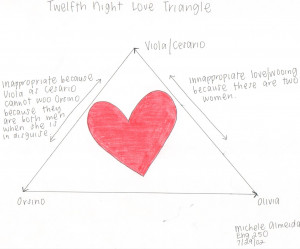 Twelfth Night Love Triangle
Viola/Cesario
Inappropriate because
Viola as Cesario
cannot woo Orsino
because they
are both men
when she is
in disguise.
Innappropiate love/wooing
because these are two
women.
Orsino
Olivia
Michele Almeida
Eng 250